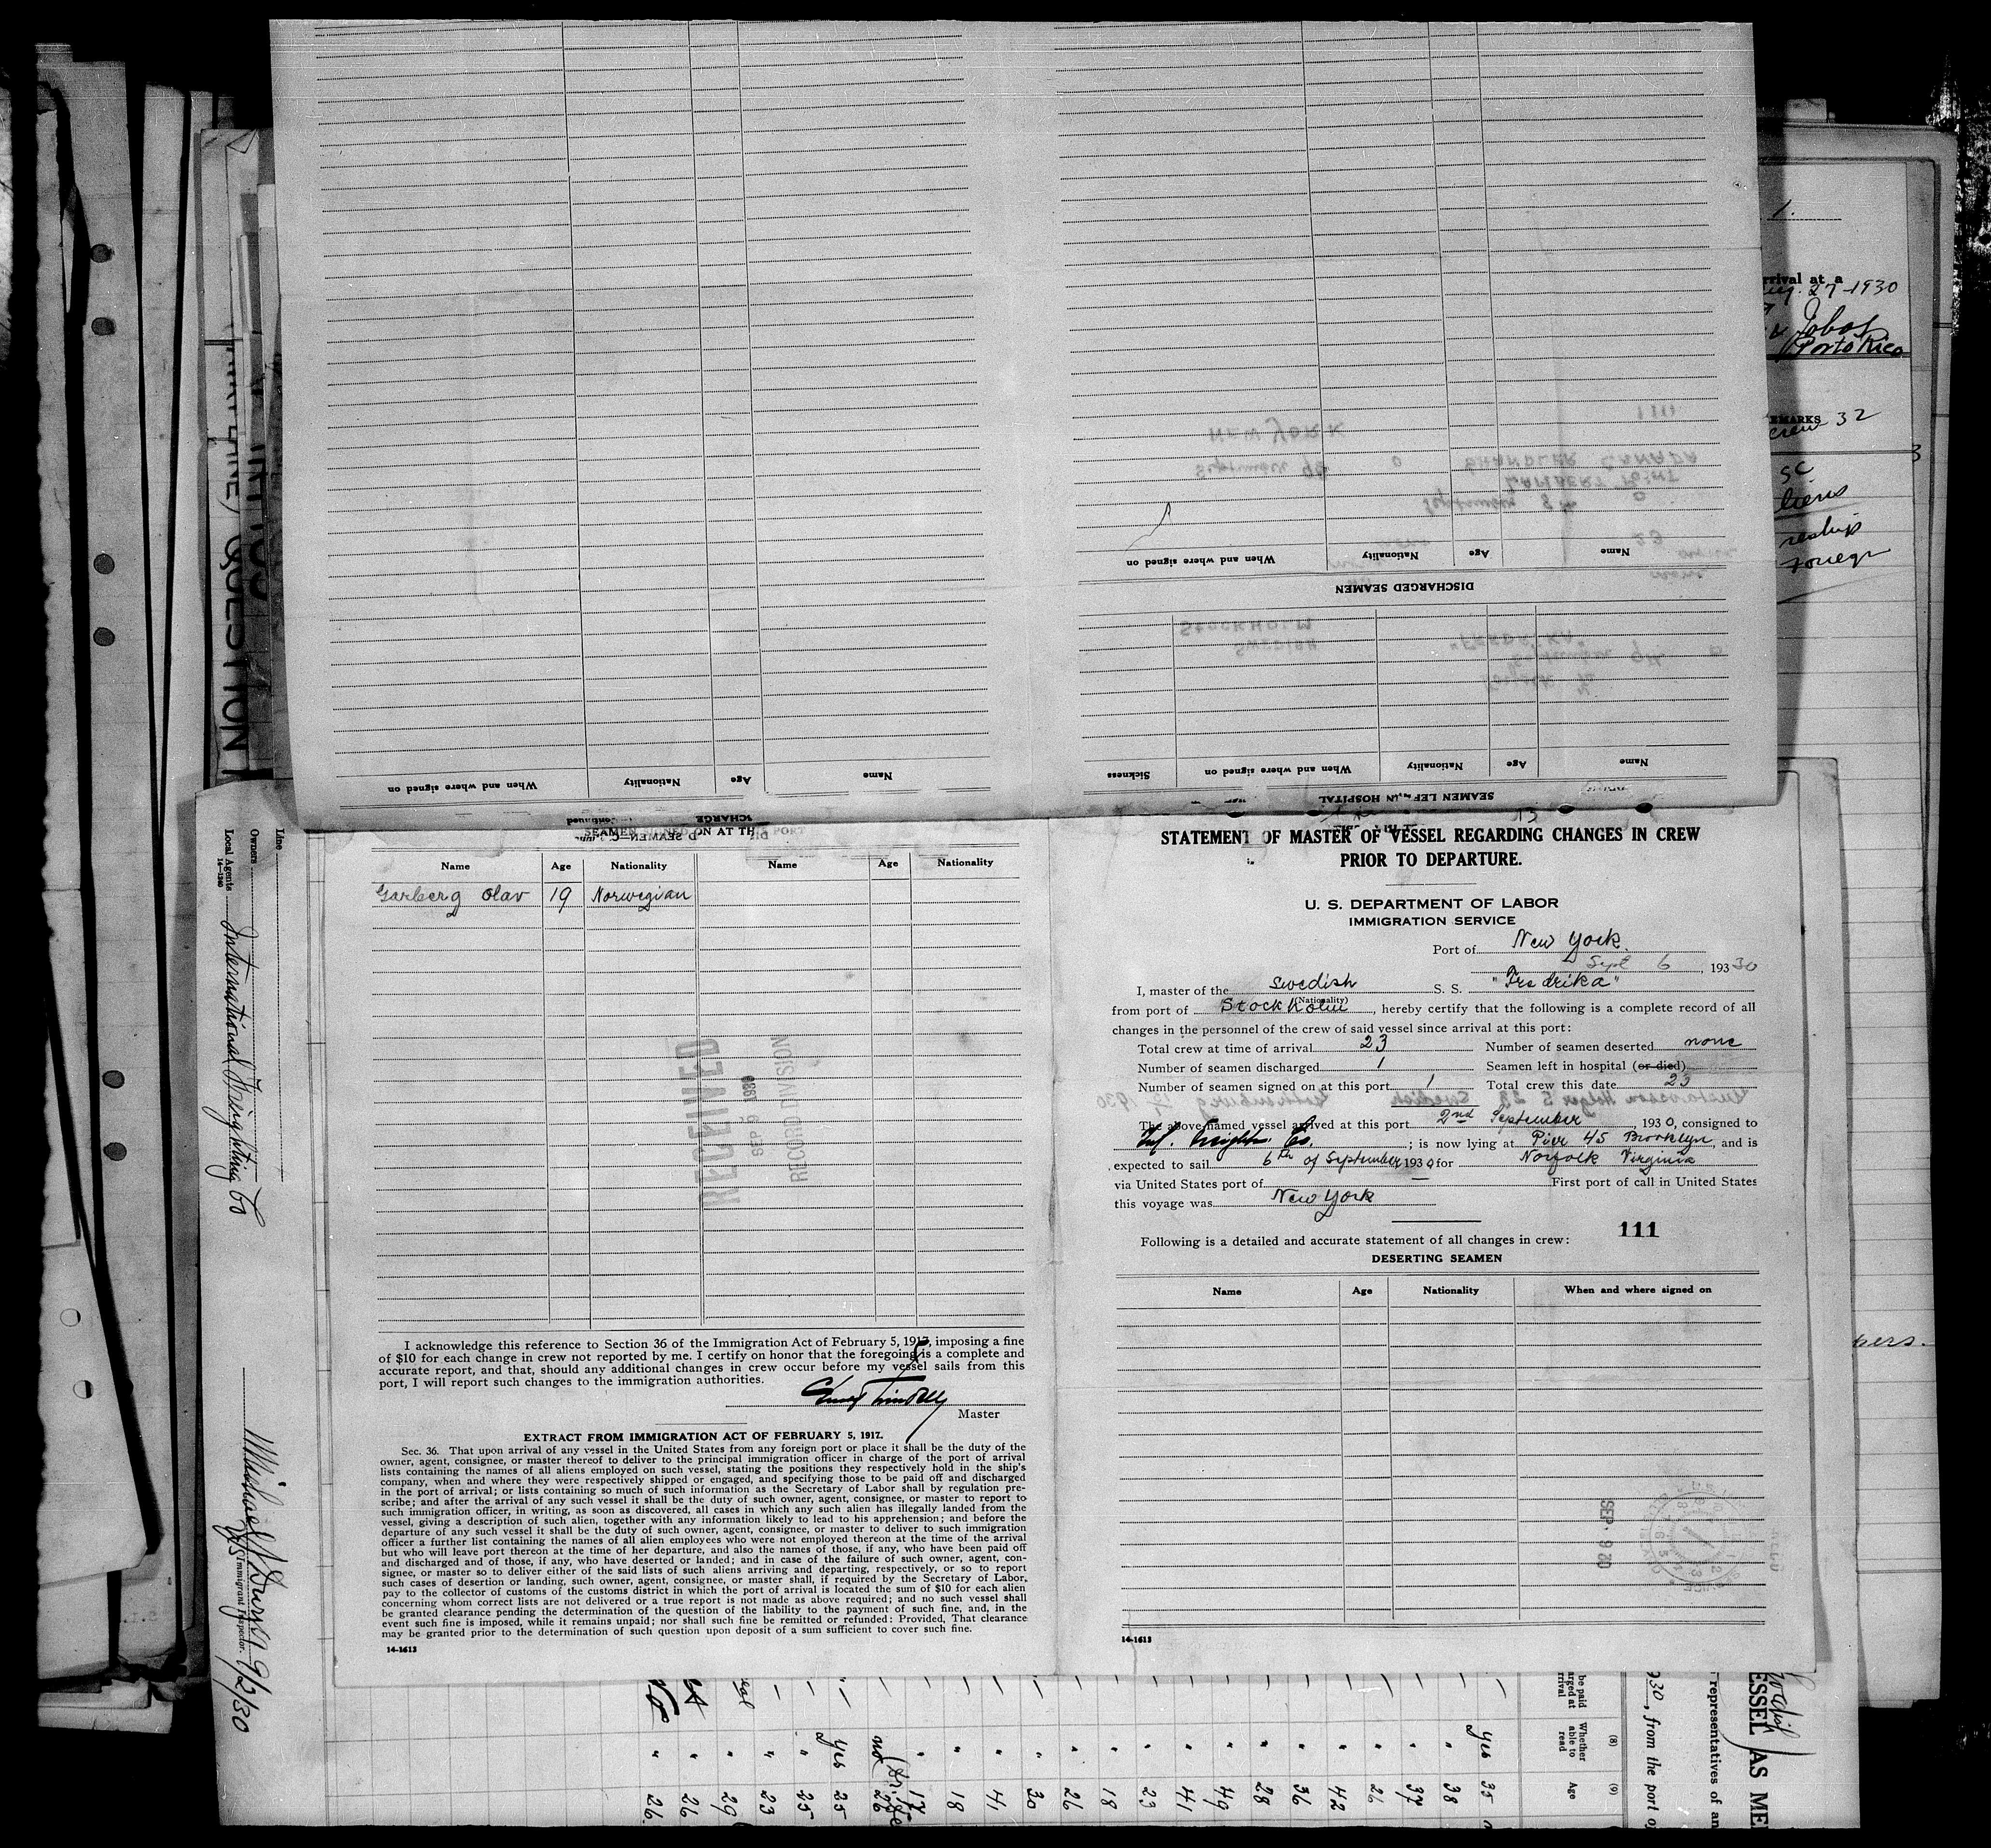 SEAMEN LEFT IN HOSPITAL
Name Age Nationality When and where signed on Sickness
DISCHARGED SEAMEN
Name Age Nationality When and where signed on
Name Age Nationality When and where signed on
SEAMEN SIGNED ON AT THIS PORT
Name Age Nationality Name Age Nationality
Garberg Olav 19 Norwegian
RECEIVED
SEP 9 1930
RECORD DIVISION
I acknowledge this reference to Section 36 of the Immigration Act of February 5, 1917, imposing a fine
of $10 for each change in crew not reported by me. I certify on honor that the foregoing is a complete and
accurate report, and that, should any additional changes in crew occur before my vessel sails from this
port, I will report such changes to the immigration authorities.
Master
EXTRACT FROM IMMIGRATION ACT OF FEBRUARY 5, 1917.
Sec. 36. That upon arrival of any vessel in the United States from any foreign port or place it shall be the duty of the
owner, agent, consignee, or master thereof to deliver to the principal immigration officer in charge of the port of arrival
lists containing the names of all aliens employed on such vessel, stating the positions they respectively hold in the ship's
company, when and where they were respectively shipped or engaged, and specifying those to be paid off and discharged
in the port of arrival; or lists containing so much of such information as the Secretary of Labor shall by regulation pre-
scribe; and after the arrival of any such vessel it shall be the duty of such owner, agent, consignee, or master to report to
such immigration officer, in writing, as soon as discovered, all cases in which any such alien has illegally landed from the
vessel, giving a description of such alien, together with any information likely to lead to his apprehension; and before the
departure of any such vessel it shall be the duty of such owner, agent, consignee, or master to deliver to such immigration
officer a further list containing the names of all alien employees who were not employed thereon at the time of the arrival
but who will leave port thereon at the time of her departure, and also the names of those, if any, who have been paid off
and discharged and of those, if any, who have deserted or landed; and in case of the failure of such owner, agent, con-
signee, or master so to deliver either of the said lists of such aliens arriving and departing, respectively, or so to report
such cases of desertion or landing, such owner, agent, consignee, or master shall, if required by the Secretary of Labor,
pay to the collector of customs of the customs district in which the port of arrival is located the sum of $10 for each alien
concerning whom correct lists are not delivered or a true report is not made as above required; and no such vessel shall
be granted clearance pending the determination of the question of the liability to the payment of such fine, and, in the
event such fine is imposed, while it remains unpaid; nor shall such fine be remitted or refunded: Provided, That clearance
may be granted prior to the determination of such question upon deposit of a sum sufficient to cover such fine.
14-1613
STATEMENT OF MASTER OF VESSEL REGARDING CHANGES IN CREW
PRIOR TO DEPARTURE.
U. S. DEPARTMENT OF LABOR
IMMIGRATION SERVICE
Port of New York.
Sept 6, 19330
I, master of the Swedish S. S. "Fredrika"
(Nationality)
from port of Stockholm, hereby certify that the following is a complete record of all
changes in the personnel of the crew of said vessel since arrival at this port:
Total crew at time of arrival 23 Number of seamen deserted none
Number of seamen discharged 1 Seamen left in hospital (or died)
Number of seamen signed on at this port 1 Total crew this date 23
The above-named vessel arrived at this port 2nd September, 1930, consigned to
Int. Freighting Co.; is now lying at Pier 45 Brooklyn, and is
expected to sail 6th of September 1930 for Norfolk Virginia
via United States port of — First port of call in United States
this voyage was New York
111
Following is a detailed and accurate statement of all changes in crew:
DESERTING SEAMEN
Name Age Nationality When and where signed on
SEP. 6 30
14-1613
Line
Owners
Local Agents International Freighting Co
14-1240
Immigrant Inspector.
9/2/30
QUESTION
1.
arrival at a
Aug. 27-1930
Jobos
Porto Rico
REMARKS
crew 32
3
be paid
arged at
arrival
(8)
Whether
able to
read
(9)
Age
yes 35
38
37
26
42
36
28
49
41
23
18
26
30
41
18
17
no 26
yes 25
25
23
29
26
26
930, from the port of
representatives of an
ESSEL AS MEM